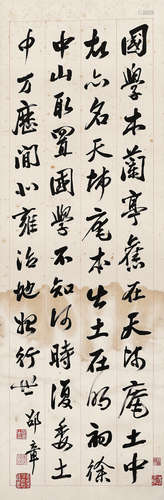 國學本蘭亭舊在天師庵土中
故亦名天師庵本出土在明初徐
中山取置國學不知何時復委土
中万歷間北雍治地始行世